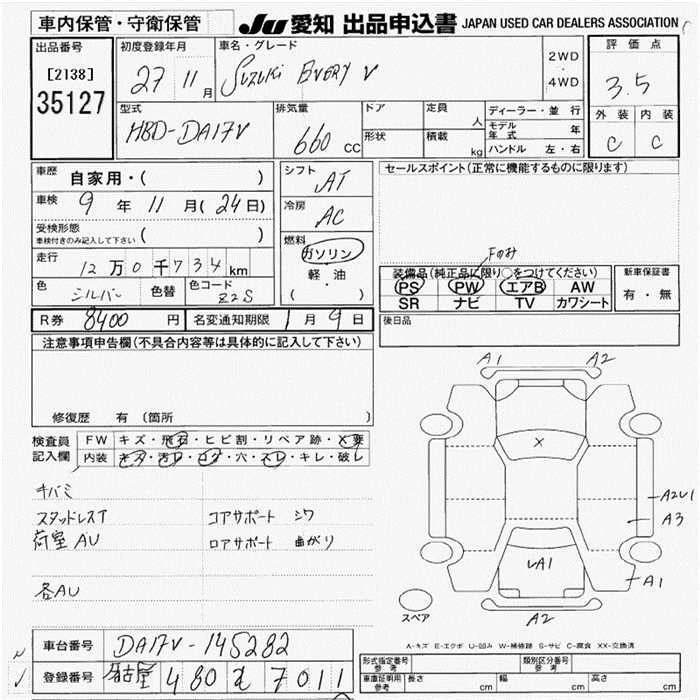 車内保管・守衛保管
JU 愛知 出品申込書 JAPAN USED CAR DEALERS ASSOCIATION
出品番号
[2138]
35127
初度登録年月
27 11 月
車名・グレード
SUZUKI EVERY V
2WD
・
4WD
評価点
3.5
外装 内装
C C
型式
HBD-DA17V
排気量
660 cc
ドア
形状
定員
人
積載
kg
ディーラー・並行
モデル年式 年
ハンドル 左・右
車歴 自家用・( )
車検 9 年 11 月( 24 日)
受検形態
車検付きのみ記入して下さい ( )
走行 12 万 0 千 7 3 4 km
色 シルバー 色替 色コード Z2S
シフト AT
冷房 AC
燃料
ガソリン
軽・油
( ・ )
セールスポイント(正常に機能するものに限ります)
Fのみ
装備品(純正品に限り○をつけてください)
PS PW エアB AW
SR ナビ TV カワシート
新車保証書
有・無
R券 8400 円 名変通知期限 1 月 9 日
後日品
注意事項申告欄(不具合内容等は具体的に記入して下さい)
修復歴 有 (箇所
検査員
記入欄
FW キズ・飛石・ヒビ割・リペア跡・X要
内装 キズ・汚レ・コゲ・穴・スレ・キレ・破レ
キバミ
スタッドレスT コアサポート シワ
荷室AU ロアサポート 曲がり
各AU
A1 A2
X
A2U1
A3
A1
A1
スペア A2
A-キズ E-エクボ U-凹み W-補修跡 S-サビ C-腐食 XX-交換済
車台番号 DA17V-145282
登録番号 名古屋 480 え 7011
形式指定番号
参考
類別区分番号
参考
車庫証明用
参考
長さ cm 幅 cm 高さ cm